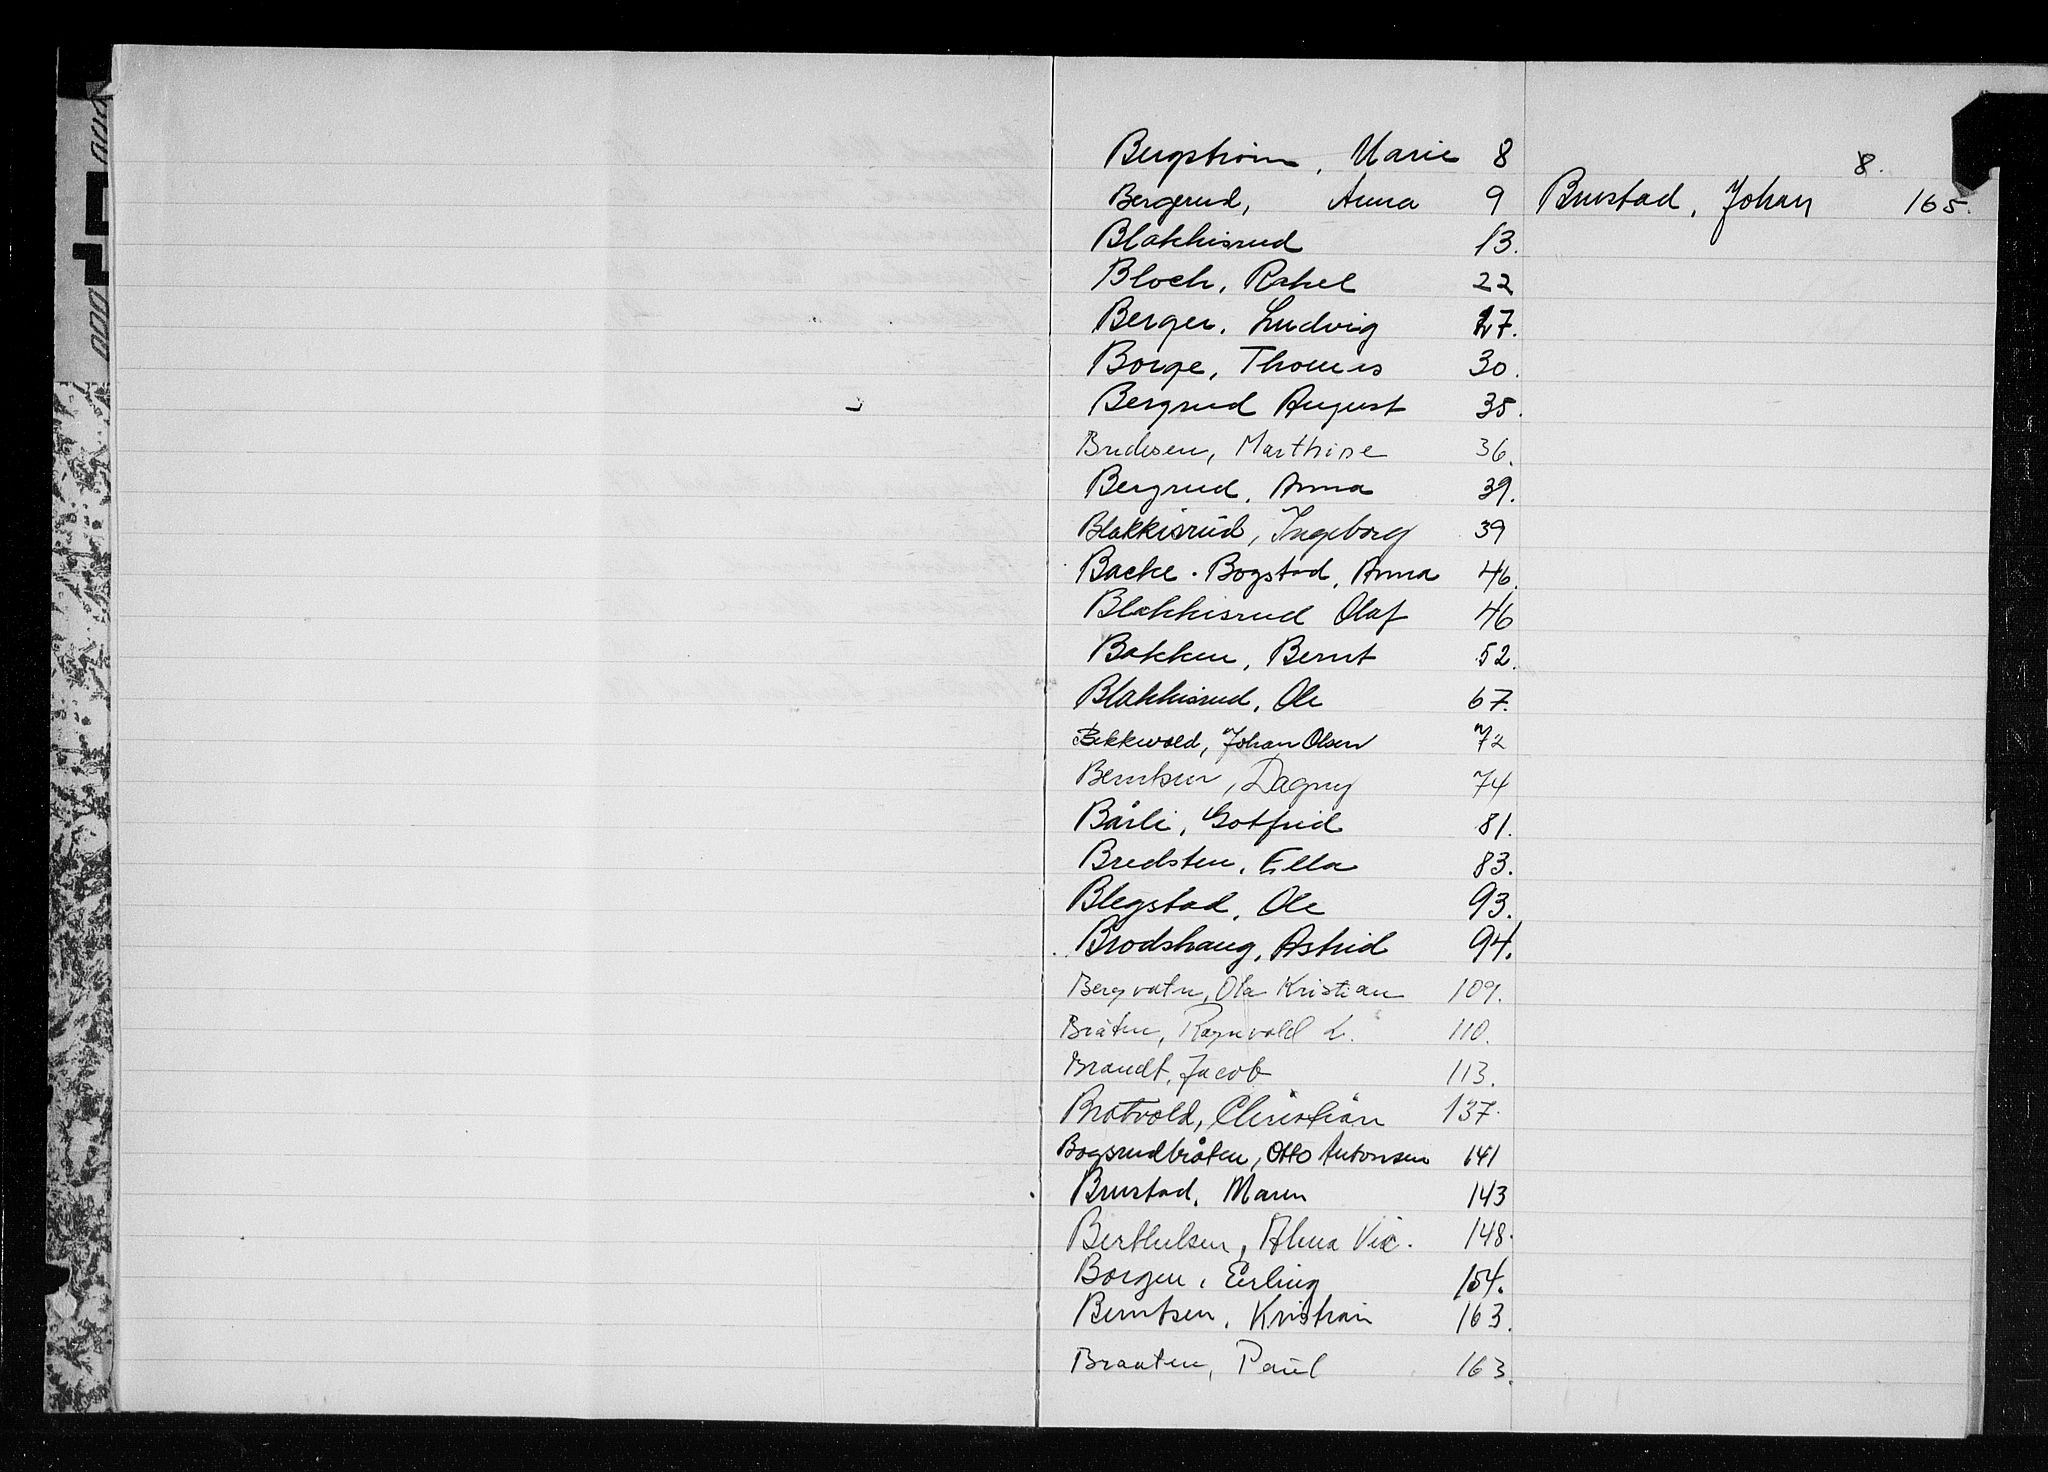 Bergstrøm, Marie 8
Bergerud, Anna 9
Blakkisrud 13.
Bloch, Rakel 22
Berger, Ludvig 27.
Borge, Thomas 30.
Bergrud August 35.
Brudesen, Marthine 36.
Bergrud, Anna 39.
Blakkisrud, Ingeborg 39
Backe-Bogstad, Anna 46.
Blakkisrud Olaf 46
Bakken, Bernt 52.
Blakkisrud, Ole 67.
Bekkevold, Johan Olsen 72
Berntsen, Dagny 74
Bårli, Gotfred 81.
Bredsten, Ella 83.
Blegstad, Ole 93.
Brodshaug, Astrid 94.
Bergvatn, Ola Kristian 109.
Bråten, Ragnvald L. 110.
Brandt, Jacob 113.
Bratvold, Christian 137.
Bogsrudbråten, Otto Antonsen 141
Brustad, Maren 143
Berthelsen, Alma Vic. 148.
Borgen, Erling 154.
Berntsen, Kristian 163.
Braaten, Paul 163.
8.
Brustad, Johan 165.